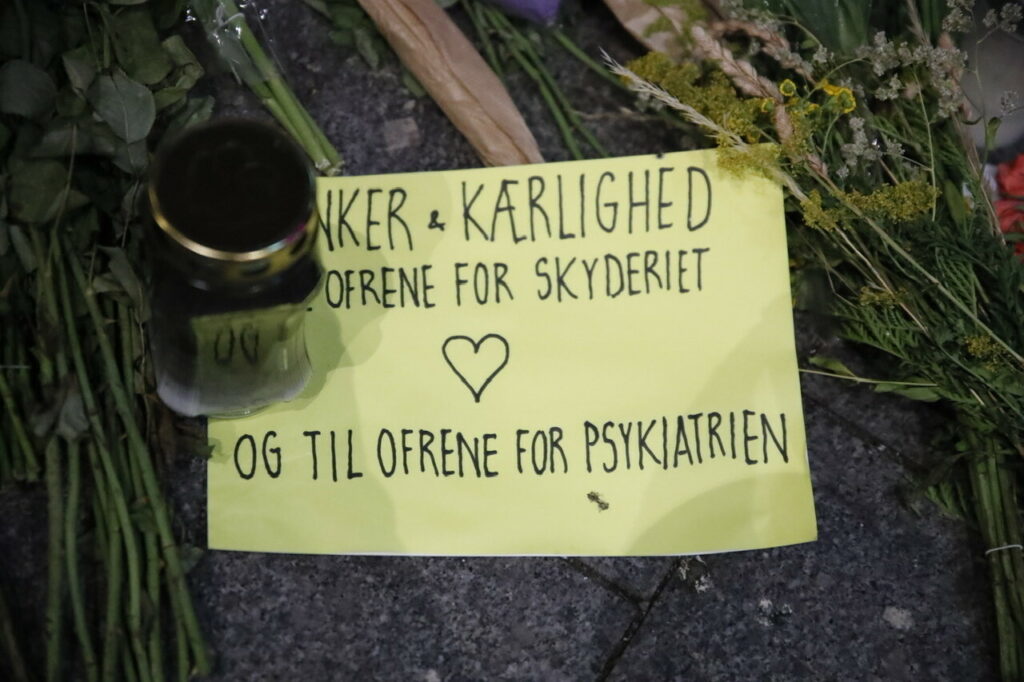 NKER & KÆRLIGHED
OFRENE FOR SKYDERIET
OG TIL OFRENE FOR PSYKIATRIEN